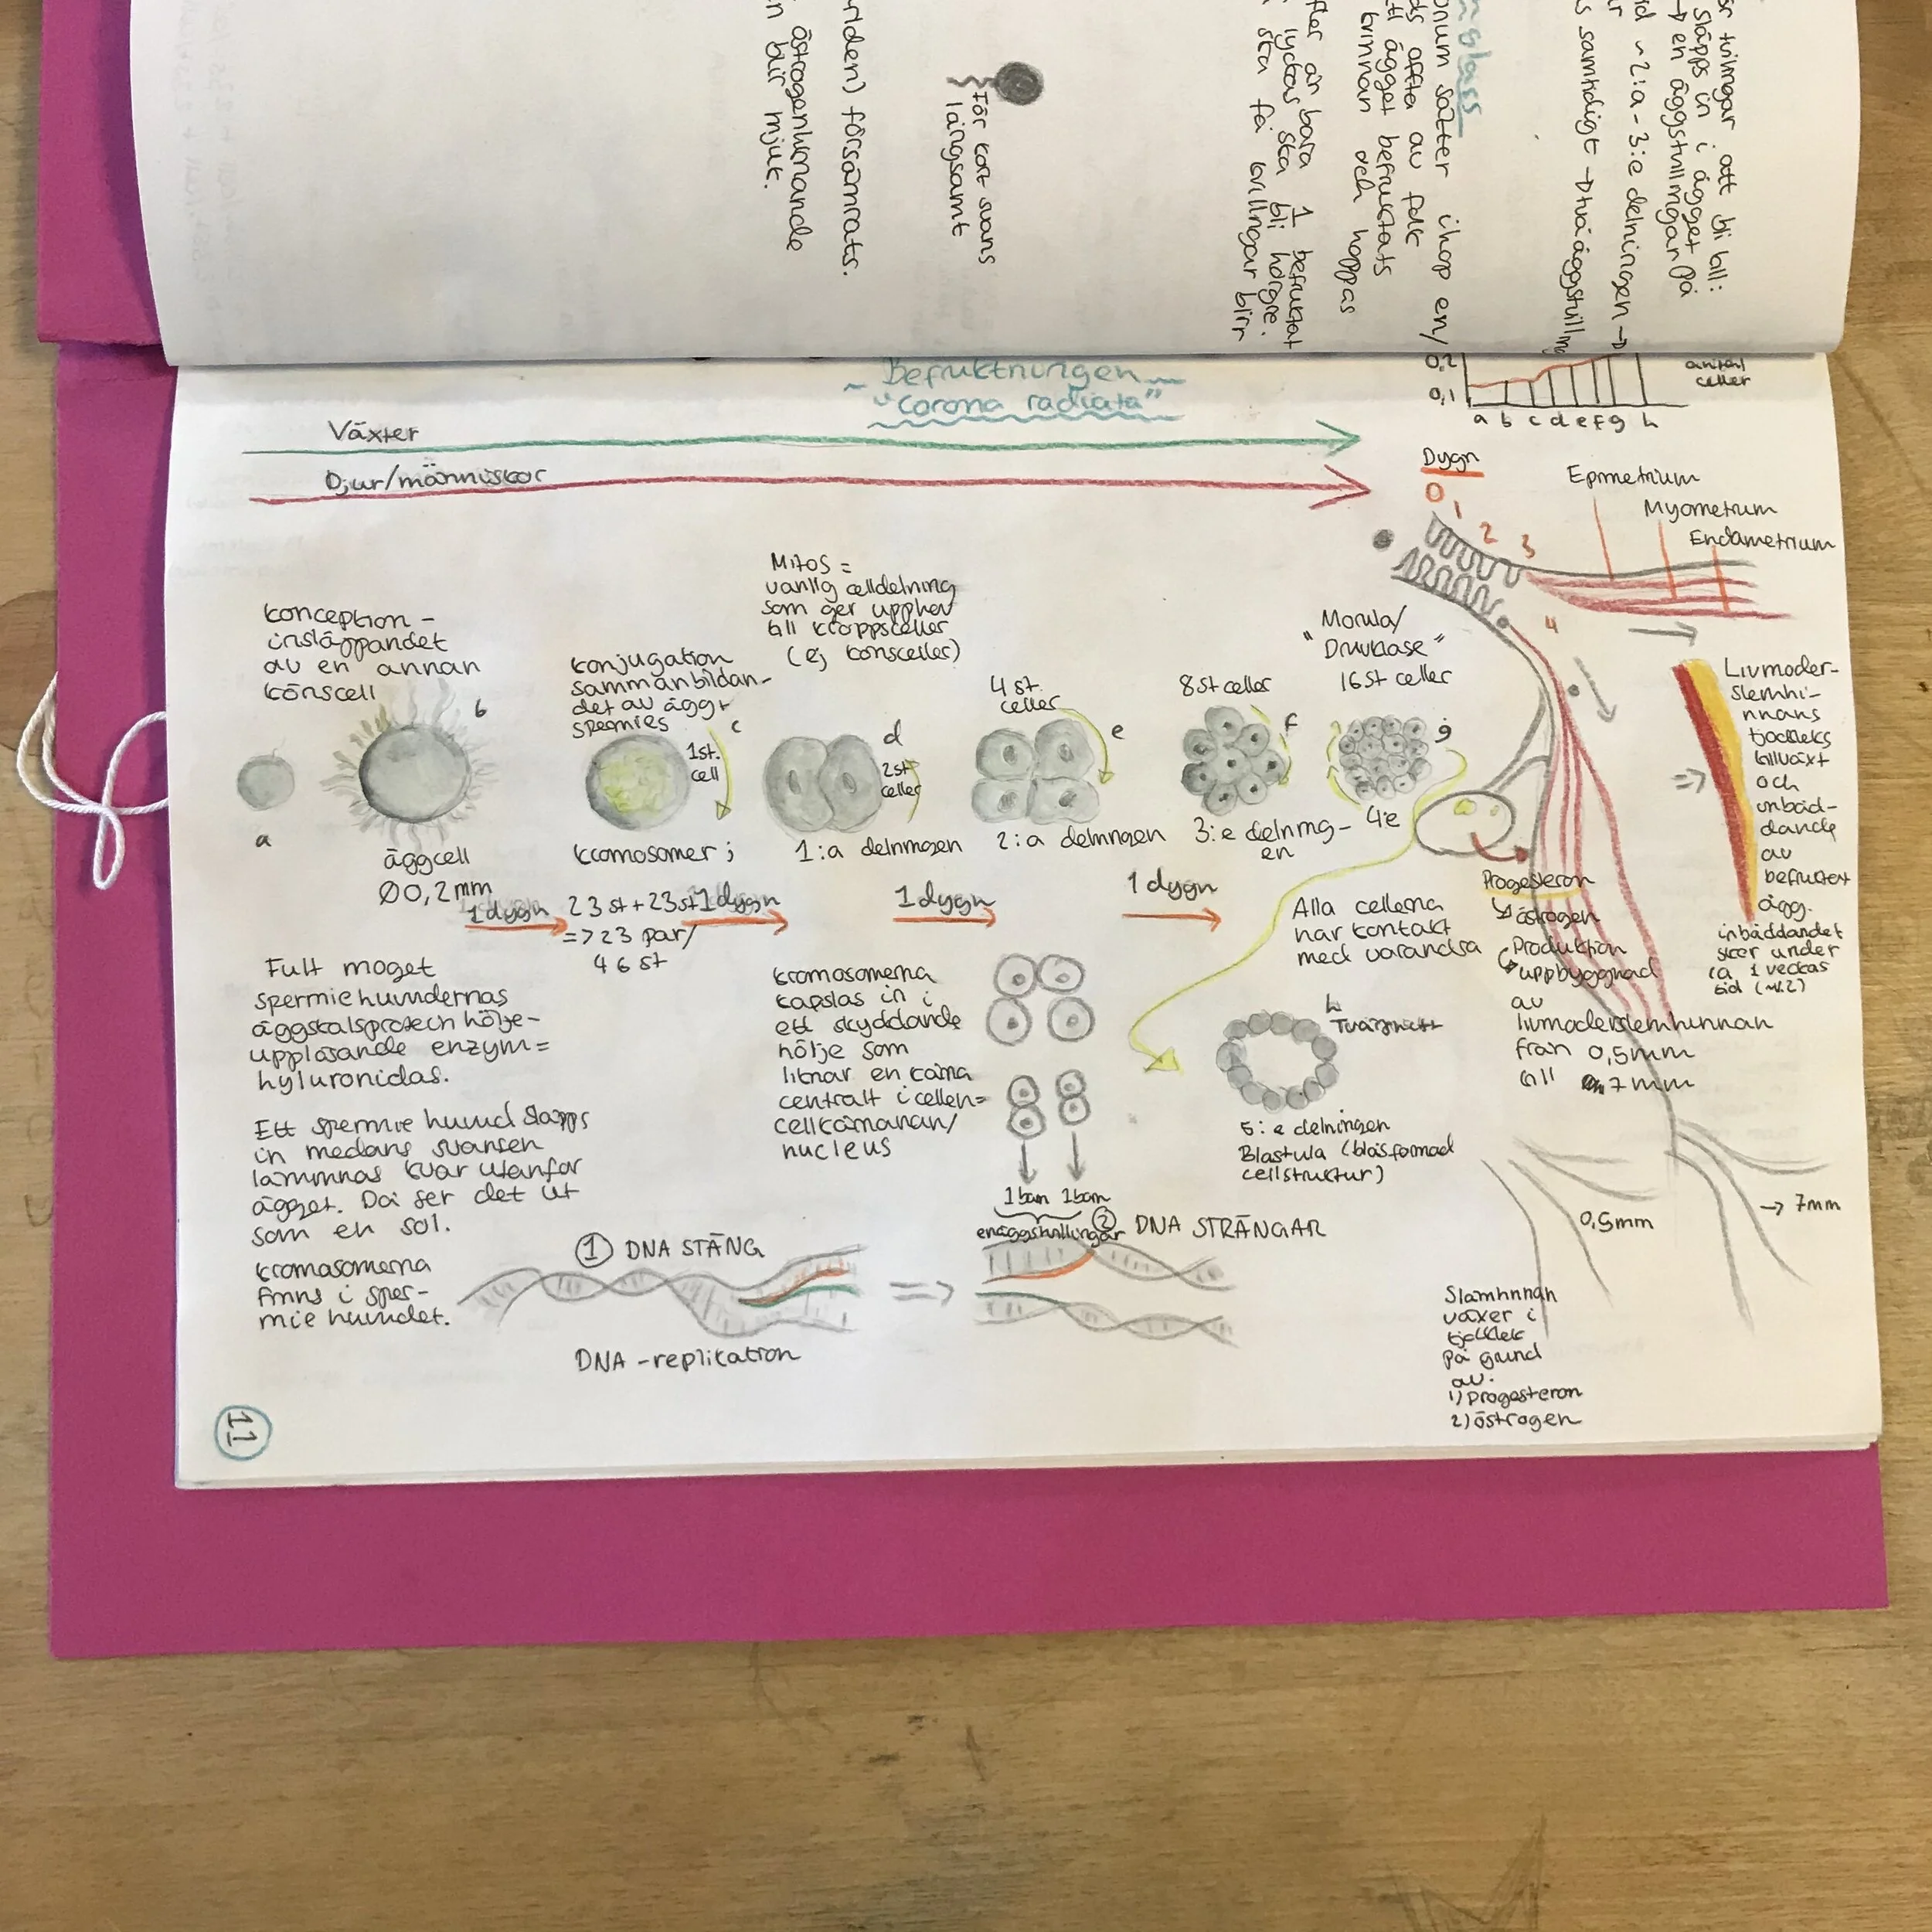 ör tvillingar att bli till:
släpps in i ägget
→ en äggstvillingar på
id ~2:a - 3:e delningen →
s samtidigt → tvåäggstvilling
nglass
onum sätter ihop en/
ds ofta av folk
tt ägget befruktats
kvinnan och hoppas
fler än bara 1 befruktat
lyckas ska bli högre.
ska få tvillingar blir
För kort svans
långsamt
rlden) försämrats.
östrogenliknande
n blir mjuk.
Befruktningen
"Corona radiata"
Växter
Djur/människor
0,2
0,1
a b c d e f g h
antal
celler
Dygn
0
1
2
3
4
Epimetrium
Myometrium
Endametrium
Konception -
insläppandet
av en annan
könscell
a
b
äggcell
Ø0,2mm
1 dygn
Konjugation
sammanbildan-
det av ägg+
spermies
c
1st.
cell
Kromosomer;
23 st + 23st
=> 23 par/
46 st
1 dygn
Mitos =
vanlig celldelning
som ger upphov
till kroppsceller
(ej könsceller)
d
2st
celler
1:a delningen
4 st.
celler
e
2:a delningen
1 dygn
8 st celler
f
3:e delning-
en
1 dygn
Morula/
"Druvklase"
16 st celler
g
4:e
Alla cellerna
har kontakt
med varandra
Fullt moget
spermiehuvudernas
äggskalsprotech hölje-
upplösande enzym=
hyluronidas.
Ett spermie huvud släpps
in medans svansen
lämmnas kvar utanför
ägget. Då ser det ut
som en sol.
Kromasomerna
finns i sper-
mie huvudet.
Kromosomerna
kapslas in i
ett skyddande
hölje som
liknar en kärna
centralt i cellen=
cellkärnanan/
nucleus
1 barn 1barn
enäggstvillingar
h
Tvärsnitt
5:e delningen
Blastula (blåsformad
cellstruktur)
① DNA STÄNG
② DNA STRÄNGAR
DNA-replikation
Progesteron
↳ östrogen
Produktion
uppbyggnad
av
livmoderslemhinnan
från 0,5mm
till 7mm
Livmoder-
slemhi-
nnans
tjockleks
tillväxt
och
inbäd-
dande
av
befruktet
ägg.
inbäddandet
sker under
ca 1 veckas
tid (~v.2)
0,5mm
→ 7mm
Slämhinnan
växer i
tjocklek
på grund
av:
1) Progesteron
2) östrogen
11